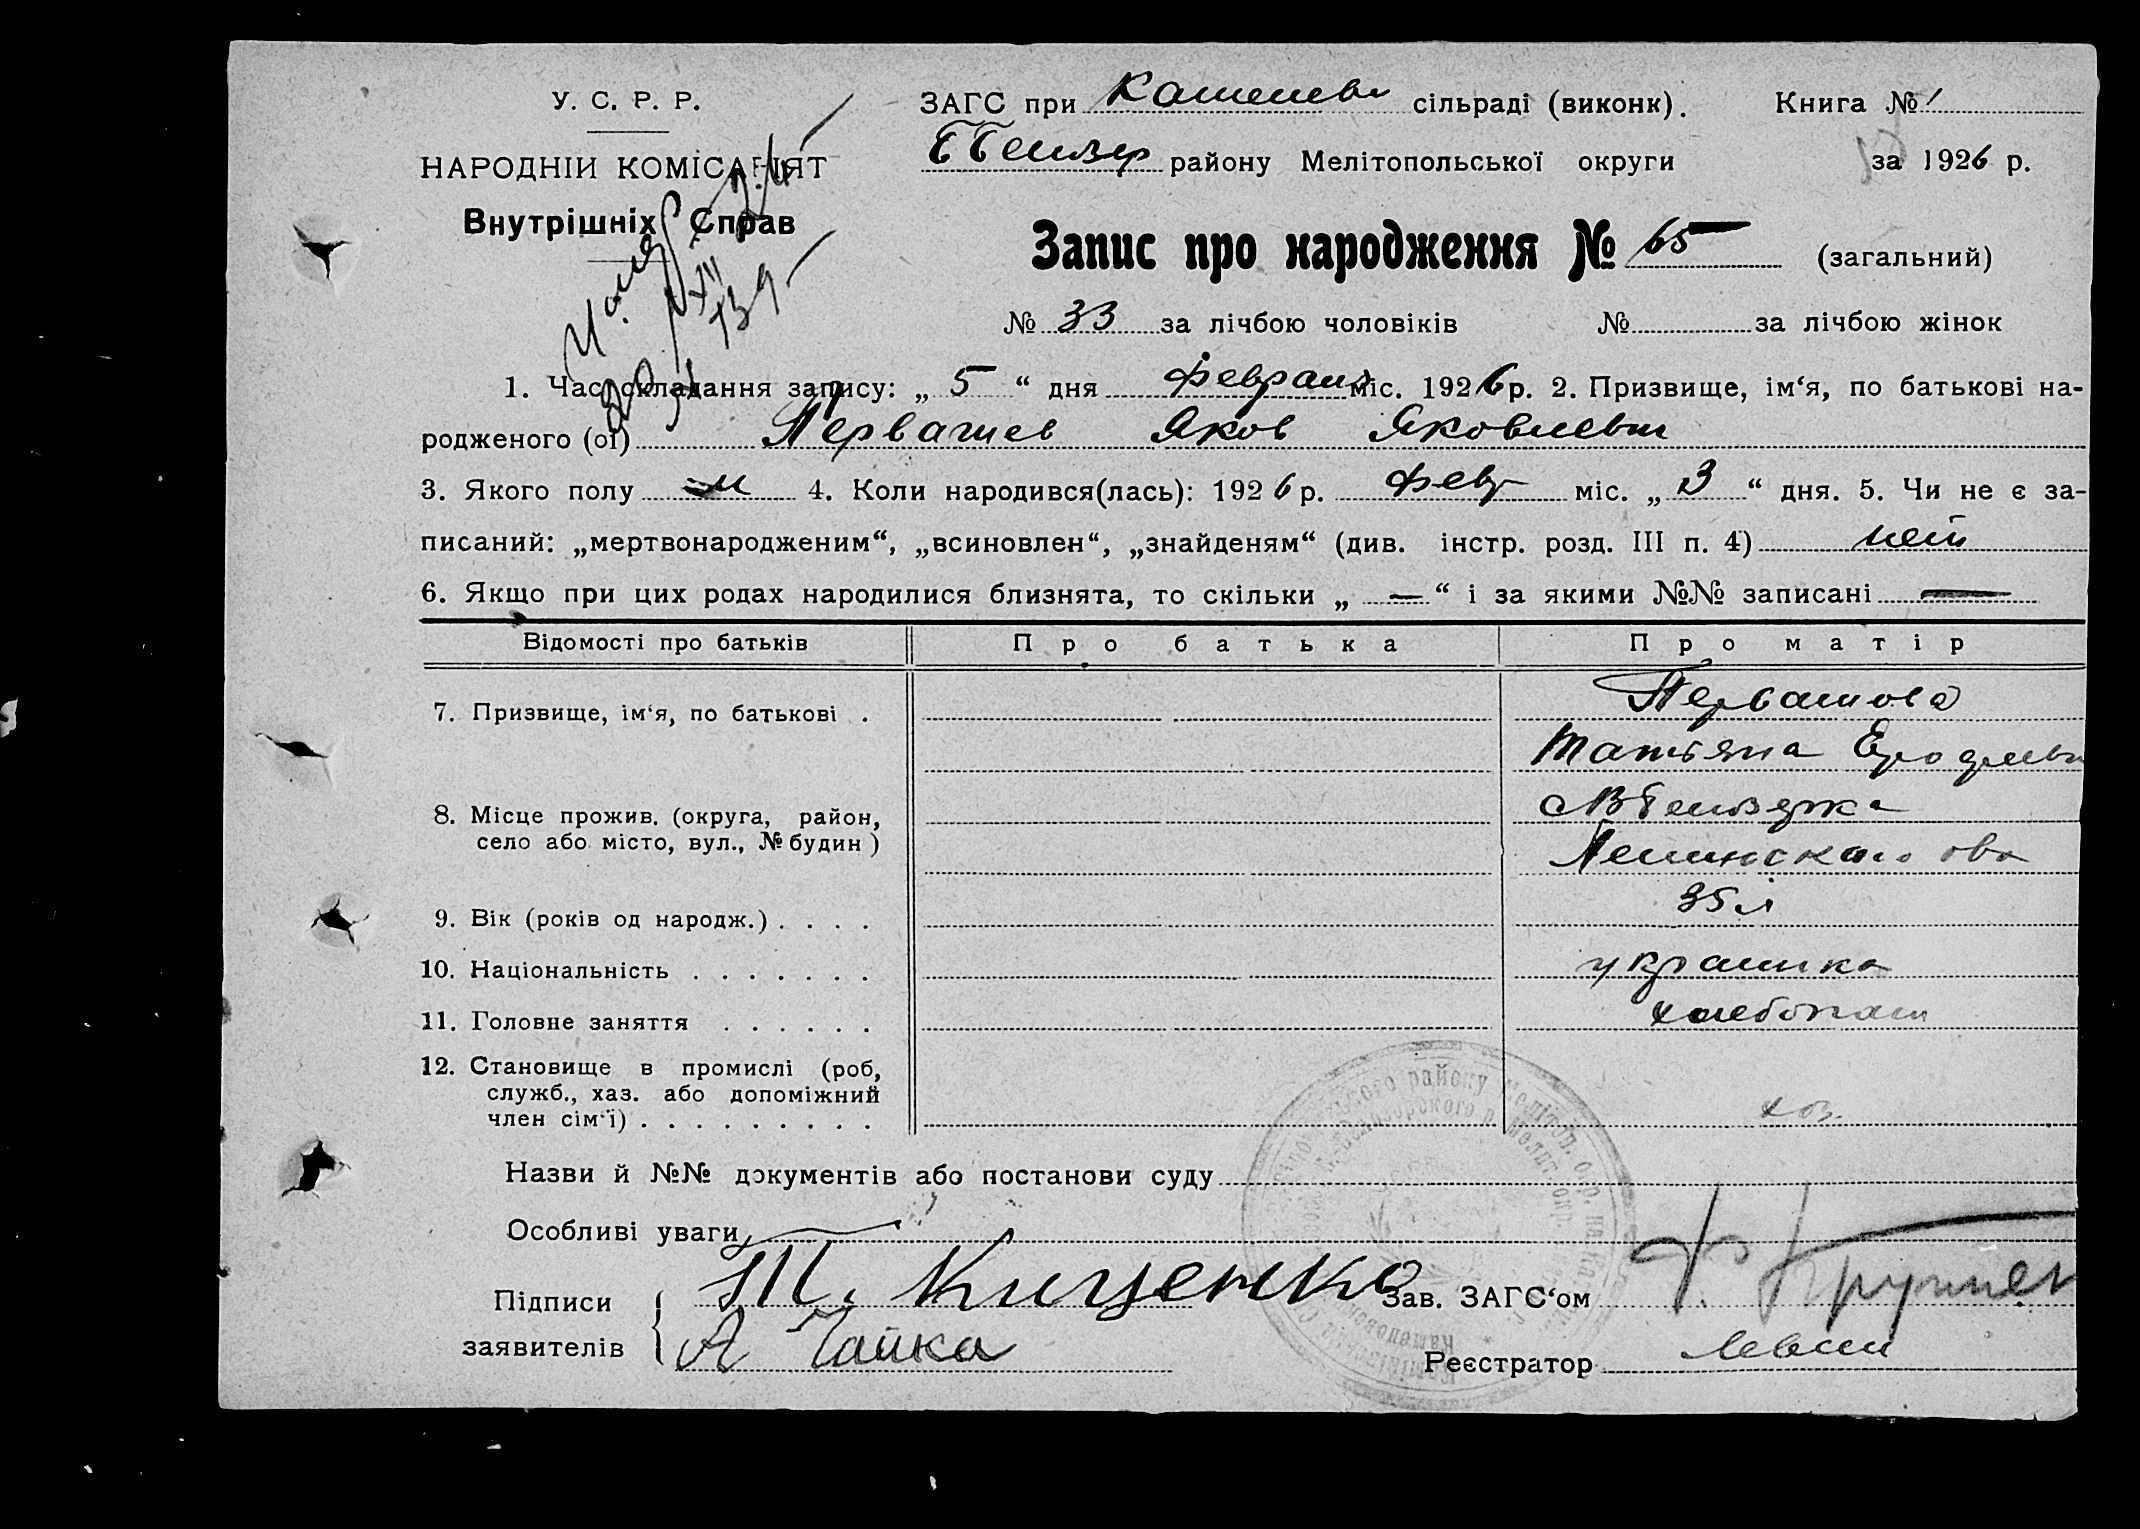 У. С. Р. Р.
НАРОДНІЙ КОМІСАРІЯТ
Внутрішніх Справ
ЗАГС при сільраді (виконк). Книга № 1
району Мелітопольської округи за 1926 р.
Запис про народження № 65 (загальний)
№ 33 за лічбою чоловіків № за лічбою жінок
1. Час складання запису: „ 5 “ дня февраля міс. 1926 р. 2. Призвище, ім‘я, по батькові на-
родженого (ої) Первашев Яков Яковлевич
3. Якого полу м 4. Коли народився(лась): 1926 р. фев міс. „ 3 “ дня. 5. Чи не є за-
писаний: „мертвонародженим“, „всиновлен“, „знайденям“ (див. інстр. розд. III п. 4) нет
6. Якщо при цих родах народилися близнята, то скільки „ — “ і за якими №№ записані —
Відомості про батьків Про батька Про матір
7. Призвище, ім‘я, по батькові . Первашова
Татьяна
8. Місце прожив. (округа, район,
село або місто, вул., № будин )
9. Вік (років од народж.) . . . . 35 л
10. Національність . . . . . . . украинка
11. Головне заняття . . . . . . хлебопаш
12. Становище в промислі (роб,
служб., хаз. або допоміжний
член сім‘ї) . . . . . . . . . хоз.
Назви й №№ документів або постанови суду
Особливі уваги
Підписи Т. Кищенко Зав. ЗАГС‘ом
заявителів А Чайка
Реєстратор